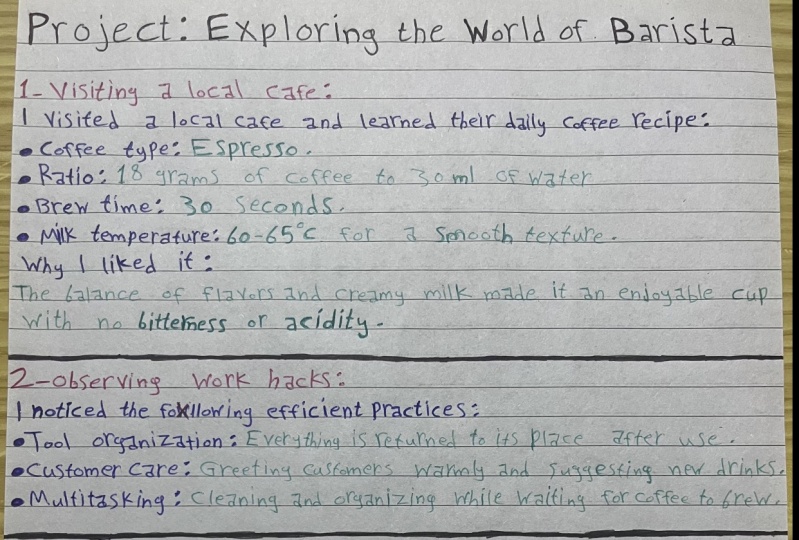 Project: Exploring the World of Barista
1- Visiting a local cafe:
I visited a local cafe and learned their daily coffee recipe:
• Coffee type: Espresso.
• Ratio: 18 grams of coffee to 30 ml of water
• Brew time: 30 seconds.
• Milk temperature: 60-65°C for a smooth texture.
Why I liked it:
The balance of flavors and creamy milk made it an enjoyable cup
with no bitterness or acidity.
2- observing work hacks:
I noticed the following efficient practices:
• Tool organization: Everything is returned to its place after use.
• Customer care: Greeting customers warmly and suggesting new drinks.
• Multitasking: Cleaning and organizing while waiting for coffee to brew.